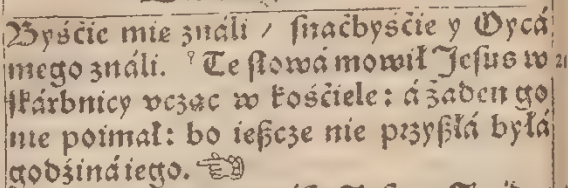 Byśćie mie ználi / snaćbyśćie y Oycá
mego ználi. Te słowá mowił Jesus w
skárbnicy vcząc w kośćiele: á żaden go
nie poimał: bo ieszcze nie przyszłá byłá
godźiná iego. ☜